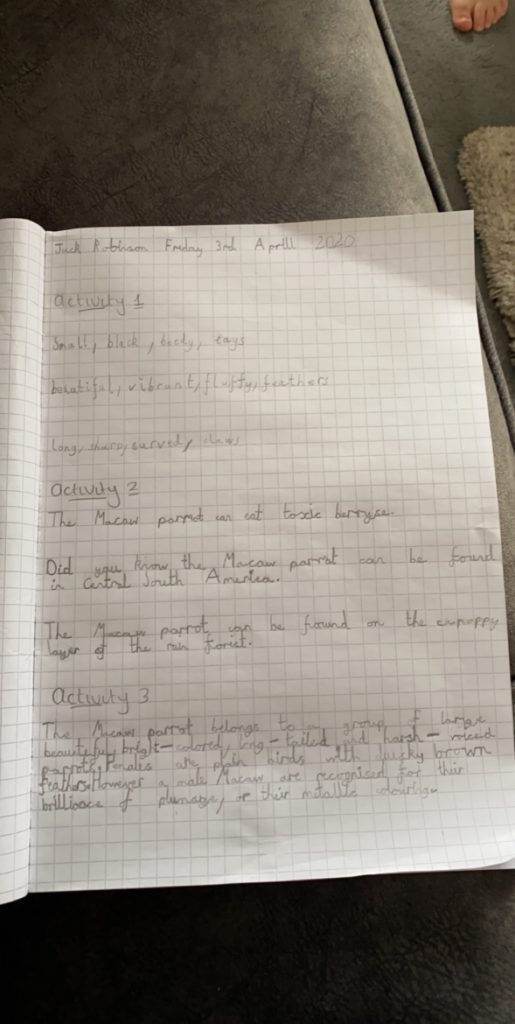 Jack Robinson Friday 3rd Aprill 2020
Activity 1
Small, black, beedy, eays
beautiful, vibrant, fluffy, feathers
long, sharp, curved, claws
Activity 2
The Macaw parrot can eat toxic berryse.
Did you know the Macaw parrot can be found
in Central South America.
The Macaw parrot can be found on the canoppy
layer of the rain forist.
Activity 3
The Macaw parrot belongs to a group of large
beautiful, bright-colored, long-tailed and harsh-voiced
parrots, Females are plain birds with dusky brown
feathers. However a male Macaw are recognised for their
brilliace of plumage, or their metallic colouring.